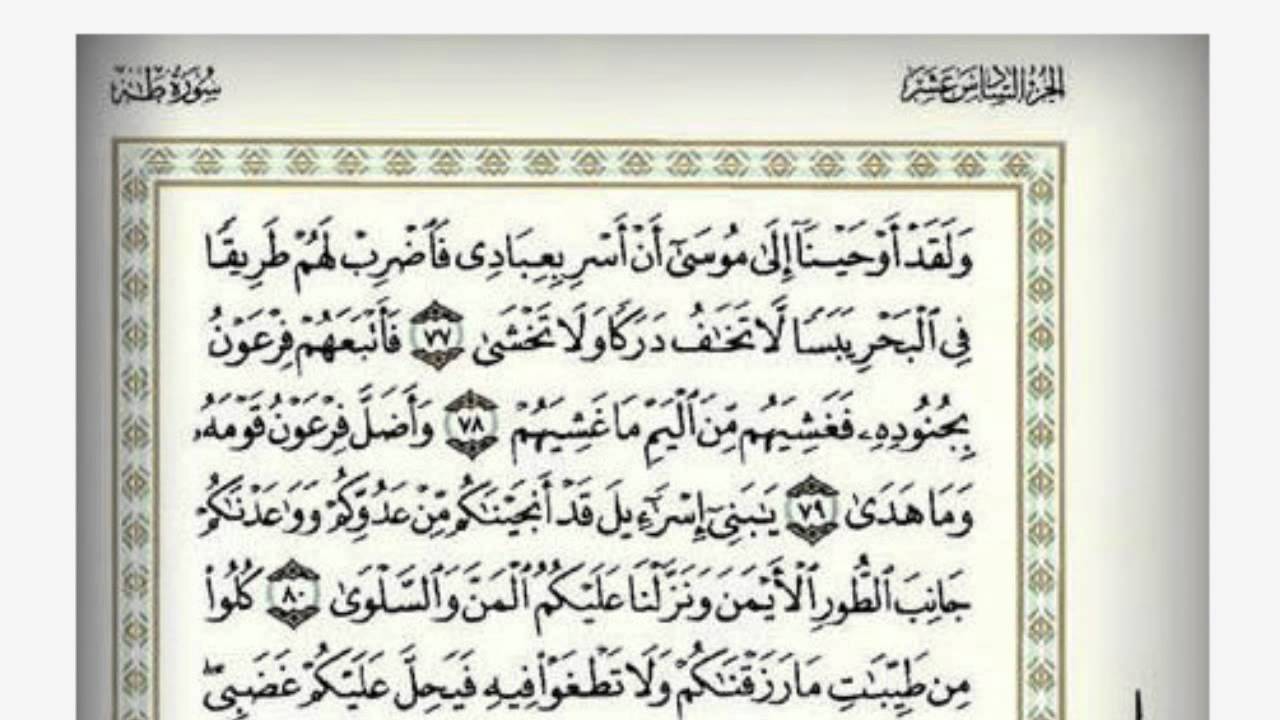 الجزء السادس عشر
سورة طه
وَلَقَدْ أَوْحَيْنَآ إِلَىٰ مُوسَىٰٓ أَنْ أَسْرِ بِعِبَادِى فَٱضْرِبْ لَهُمْ طَرِيقًا
فِى ٱلْبَحْرِ يَبَسًا لَّا تَخَـٰفُ دَرَكًا وَلَا تَخْشَىٰ ٧٧ فَأَتْبَعَهُمْ فِرْعَوْنُ
بِجُنُودِهِۦ فَغَشِيَهُم مِّنَ ٱلْيَمِّ مَا غَشِيَهُمْ ٧٨ وَأَضَلَّ فِرْعَوْنُ قَوْمَهُۥ
وَمَا هَدَىٰ ٧٩ يَـٰبَنِىٓ إِسْرَٰٓءِيلَ قَدْ أَنجَيْنَـٰكُم مِّنْ عَدُوِّكُمْ وَوَٰعَدْنَـٰكُمْ
جَانِبَ ٱلطُّورِ ٱلْأَيْمَنَ وَنَزَّلْنَا عَلَيْكُمُ ٱلْمَنَّ وَٱلسَّلْوَىٰ ٨٠ كُلُوا۟
مِن طَيِّبَـٰتِ مَا رَزَقْنَـٰكُمْ وَلَا تَطْغَوْا۟ فِيهِ فَيَحِلَّ عَلَيْكُمْ غَضَبِى ۖ